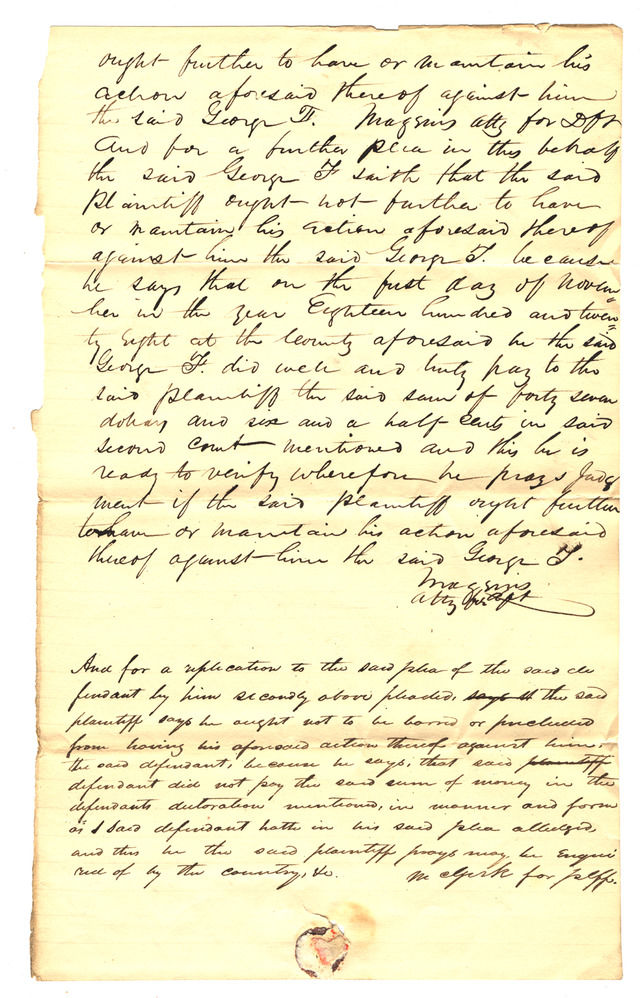 ought further to have or maintain his
action aforesaid thereof against him
the said George F. Maggins atty for Dft
And for a further plea in this behalf
the said George F saith that the said
plaintiff ought not further to have
or maintain his action aforesaid thereof
against him the said George F. because
he says that on the first day of Novem=
ber in the year Eighteen hundred and twen=
ty eight at the County aforesaid he the said
George F. did well and truly pay to the
said plaintiff the said sum of forty seven
dollars and six and a half cents in said
second count mentioned and this he is
ready to verify wherefore he prays Judg
ment if the said plaintiff ought further
to have or maintain his action aforesaid
thereof against him the said George F.
Maggins
atty for dft
And for a replication to the said plea of the said de
fendant by him secondly above pleaded, says th the said
plaintiff says he ought not to be barred or precluded
from having his aforesaid action thereof against him,
the said defendant, because he says, that said plaintiff
defendant did not pay the said sum of money in the
defendants declaration mentioned, in manner and form
as said defendant hath in his said plea alledged,
and this he the said plaintiff prays may be enqui
red of by the country, &c. McClerk for plff.